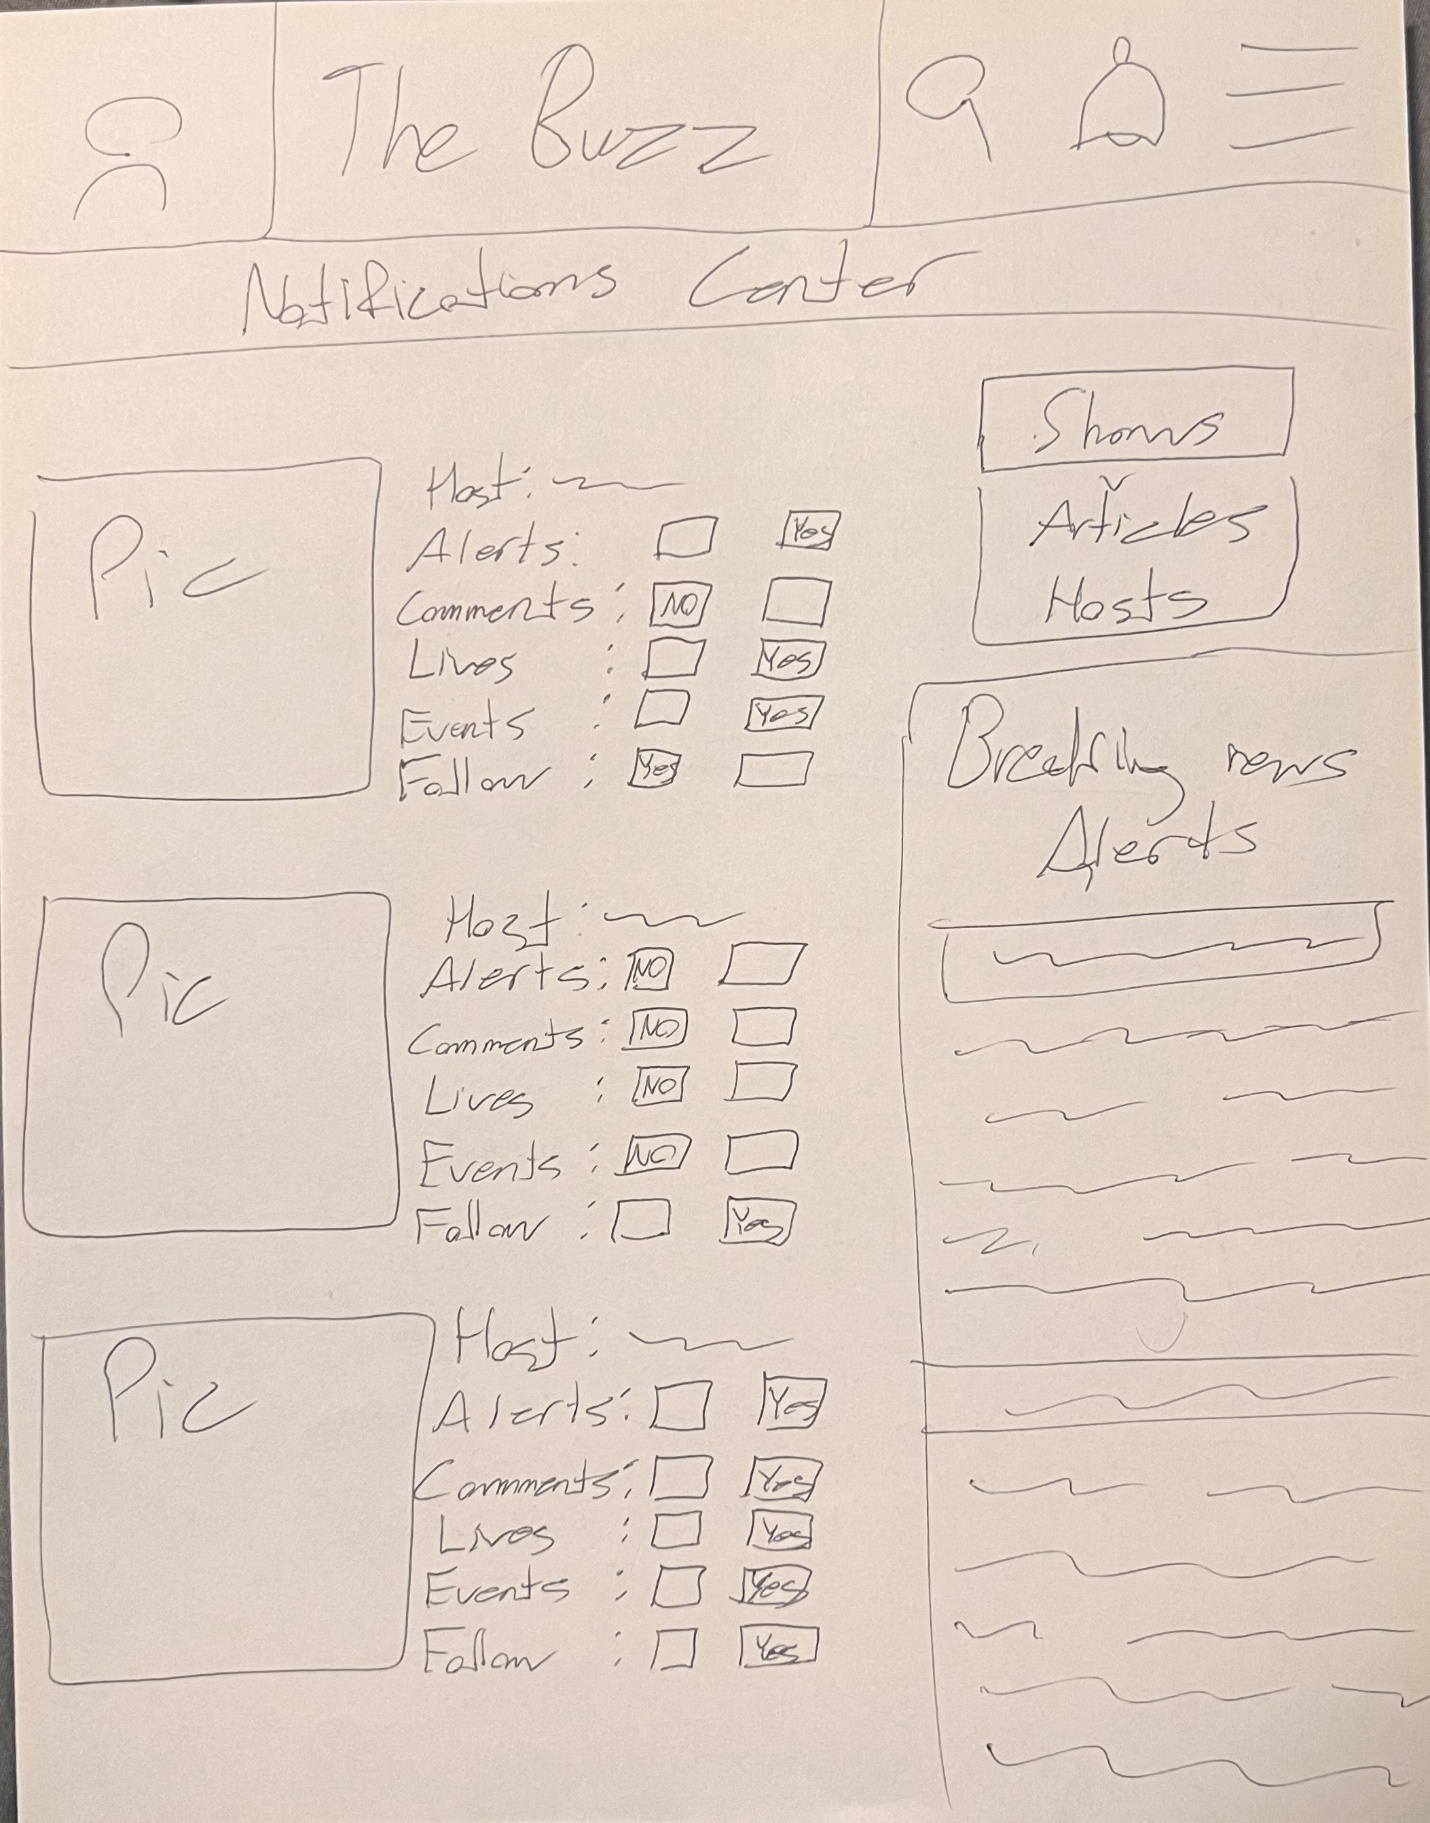 The Buzz
Notifications Center
Pic
Host:
Alerts: Yes
Comments: NO
Lives : Yes
Events : Yes
Follow : Yes
Pic
Host:
Alerts: NO
Comments: NO
Lives : NO
Events : NO
Follow : Yes
Pic
Host:
Alerts: Yes
Comments: Yes
Lives : Yes
Events : Yes
Follow : Yes
Shows
Articles
Hosts
Breaking news
Alerts